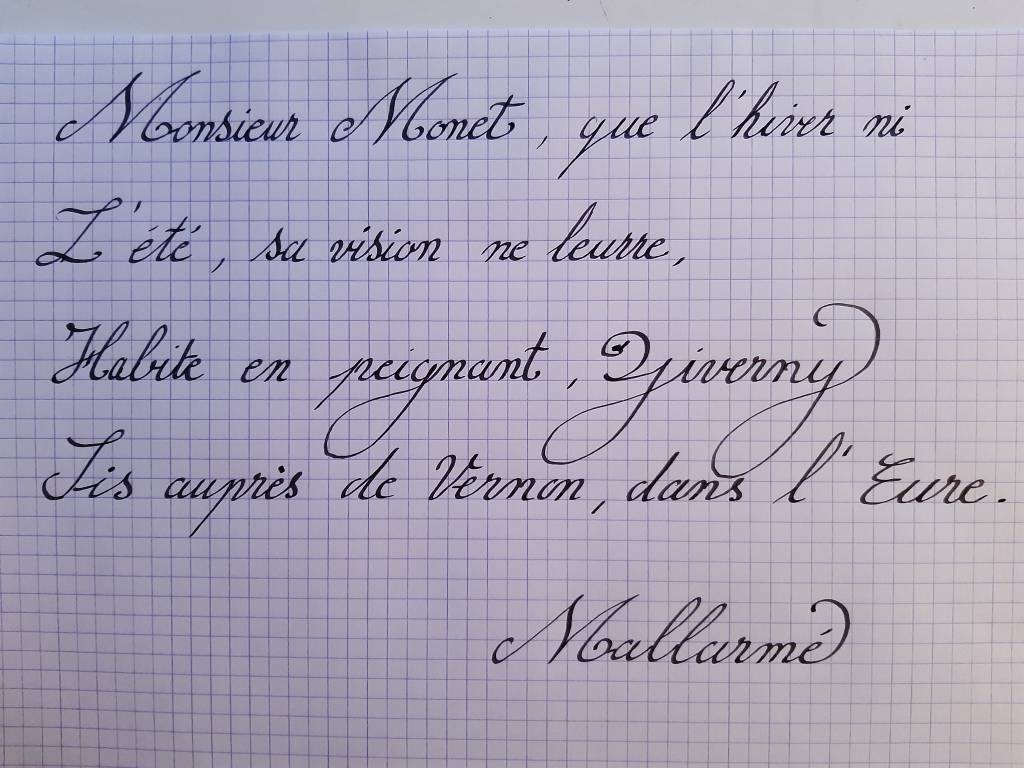 Monsieur Monet, que l'hiver ni
L'été, sa vision ne leurre,
Habite en peignant, Giverny
Sis auprès de Vernon, dans l'Eure.
Mallarmé